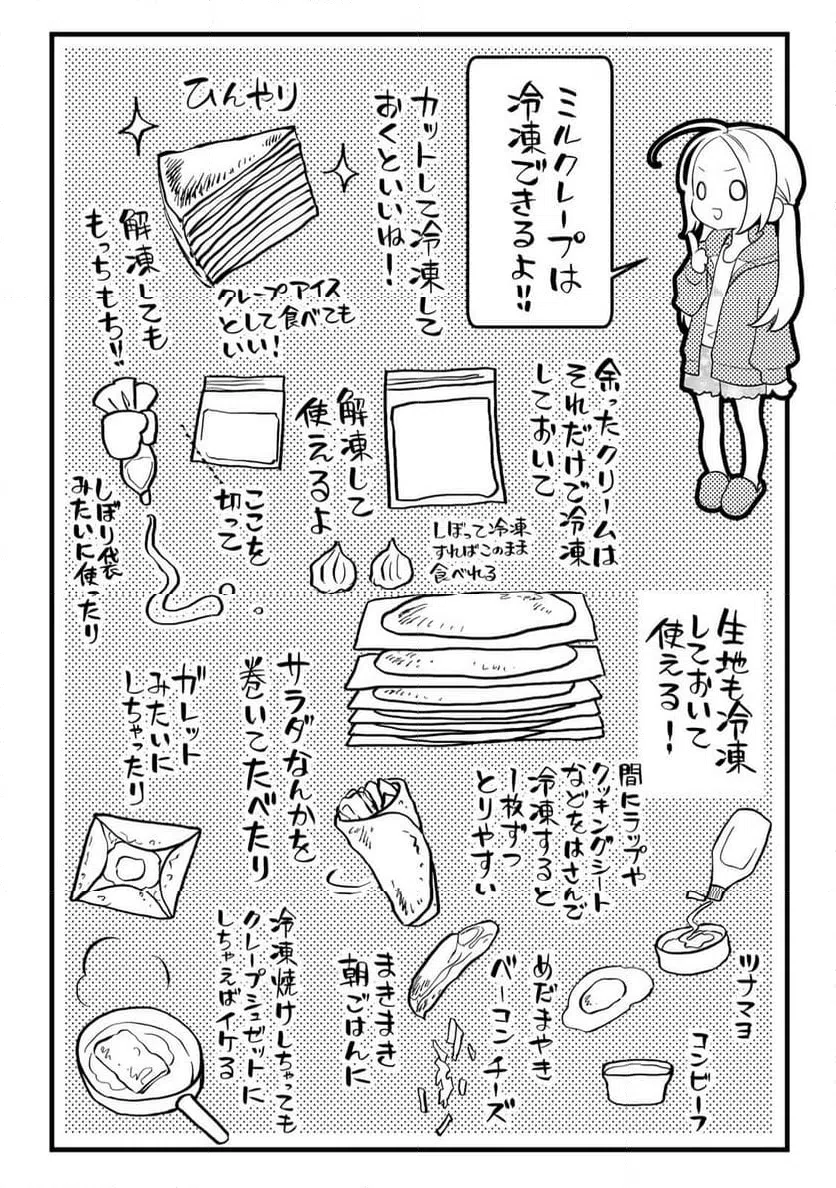 ミルクレープは
冷凍できるよ!!
カットして冷凍して
おくといいね!
ひんやり
クレープアイス
として食べても
いい!
解凍しても
もっちもち!!
余ったクリームは
それだけで冷凍
しておいて
解凍して
使えるよ
しぼって冷凍
すればこのまま
食べれる
ここを
切って
しぼり袋
みたいに使ったり
生地も冷凍
しておいて
使える!
間にラップや
クッキングシート
などをはさんで
冷凍すると
1枚ずつ
とりやすい
サラダなんかを
巻いてたべたり
ガレット
みたいに
しちゃったり
ツナマヨ
コンビーフ
めだまやき
ベーコン チーズ
まきまき
朝ごはんに
冷凍焼けしちゃっても
クレープシュゼットに
しちゃえばイケる